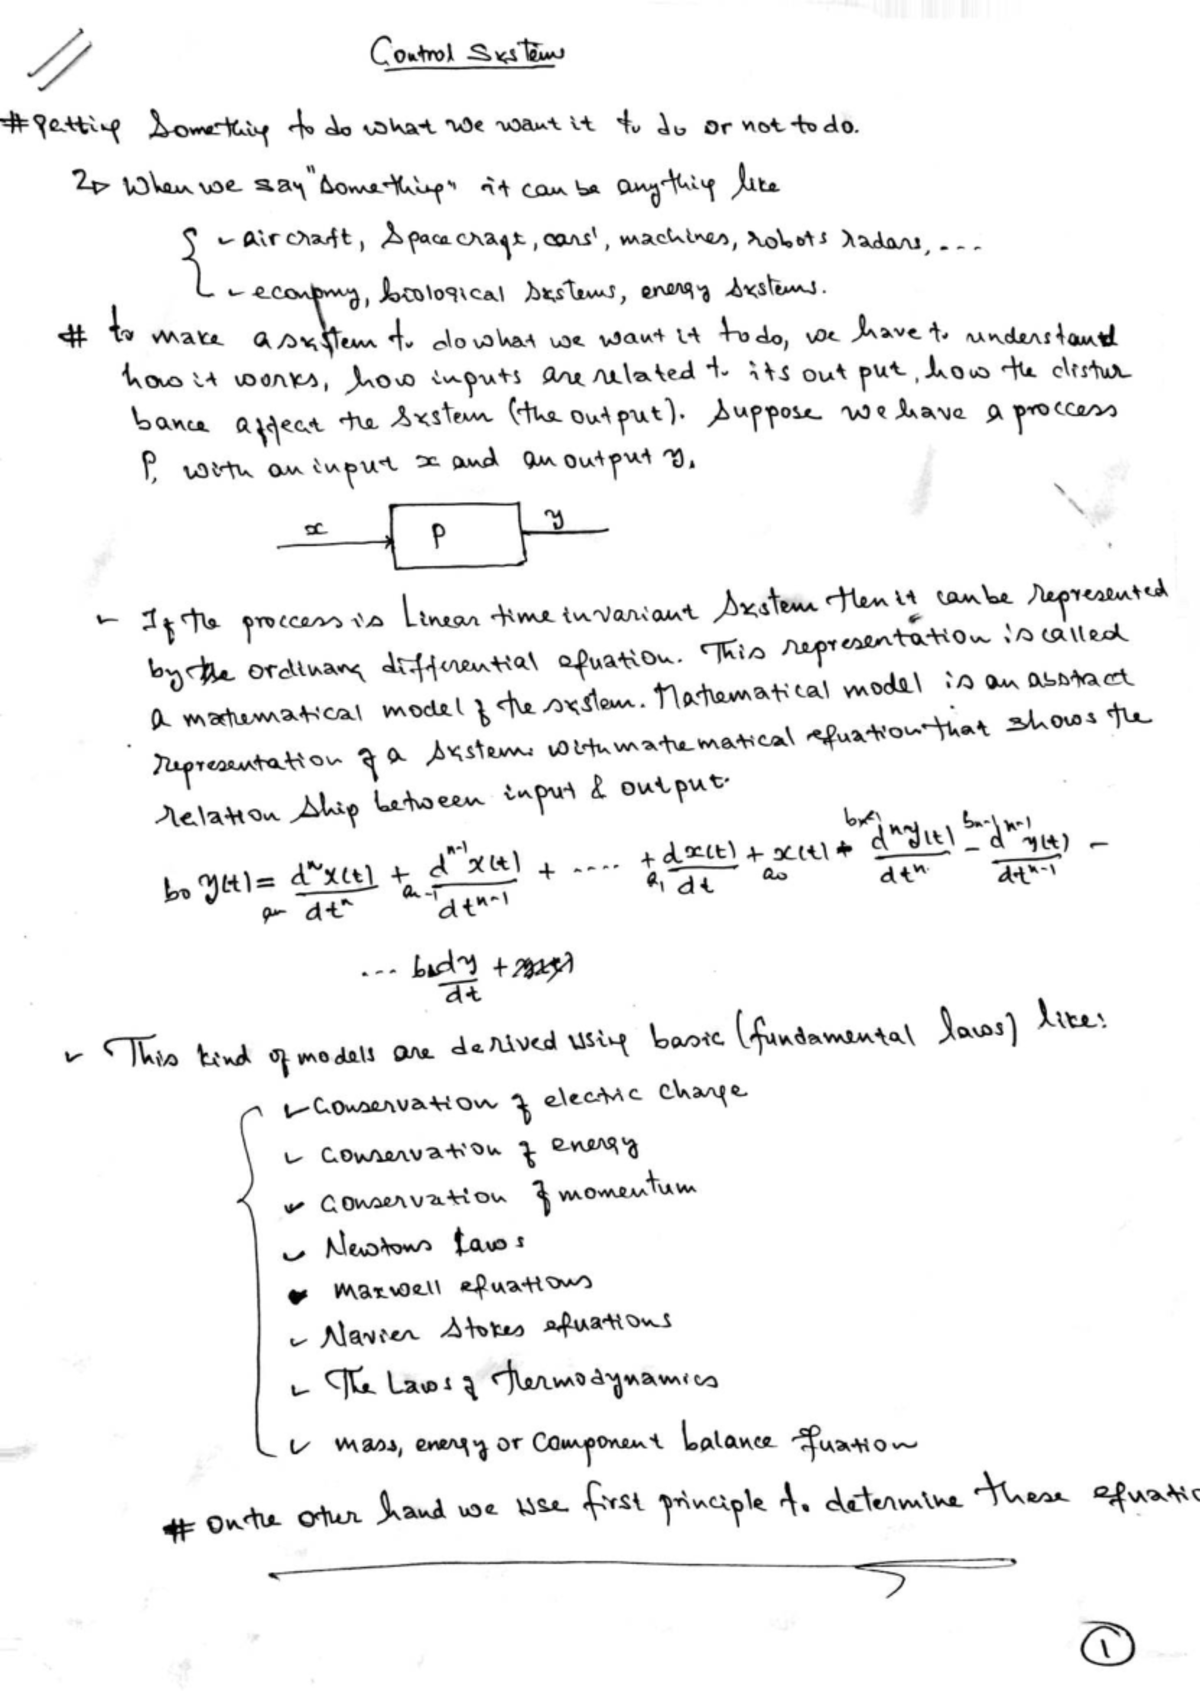 Control System
# getting something to do what we want it to do or not to do.
2▷ When we say "something" it can be anything like
- aircraft, spacecraft, cars', machines, robots radars, ...
- economy, biological systems, energy systems.
# to make a system to do what we want it to do, we have to understand
how it works, how inputs are related to its out put, how the distur
bance affect the system (the output). Suppose we have a proccess
P, with an input x and an output y.
x P y
- If the proccess is Linear time invariant system then it can be represented
by the ordinary differential equation. This representation is called
a mathematical model of the system. Mathematical model is an abstract
representation of a system with mathematical equation that shows the
relation ship between input & output.
b₀ y(t) = aₙ dⁿx(t)/dtⁿ + aₙ₋₁ dⁿ⁻¹x(t)/dtⁿ⁻¹ + .... + a₁ dx(t)/dt + a₀ x(t) dⁿy(t)/dtⁿ - bₙ₋₁ dⁿ⁻¹y(t)/dtⁿ⁻¹ -
... b₁ dy/dt +
✓ This kind of models are derived using basic (fundamental laws) like:
✓ Conservation of electric charge
✓ Conservation of energy
✓ Conservation of momentum
✓ Newtons Laws
• Maxwell equations
✓ Navier Stokes equations
✓ The Laws of thermodynamics
✓ mass, energy or Component balance equation
# on the other hand we use first principle to determine these equatio
1